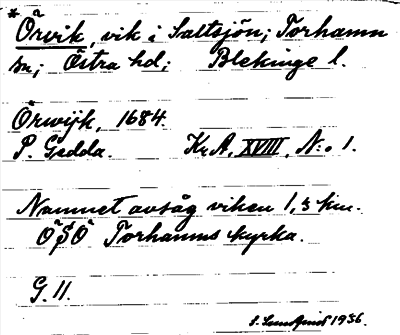 *Örvik, vik i Saltsjön; Torhamn
sn; Östra hd; Blekinge l.
Örwijk, 1684.
P. Gedda. Kr.A. XVIII, N:o 1.
Namnet avsåg viken 1,3 km.
ÖSÖ Torhamns kyrka.
G. 11.
S. Lundquist 1936.